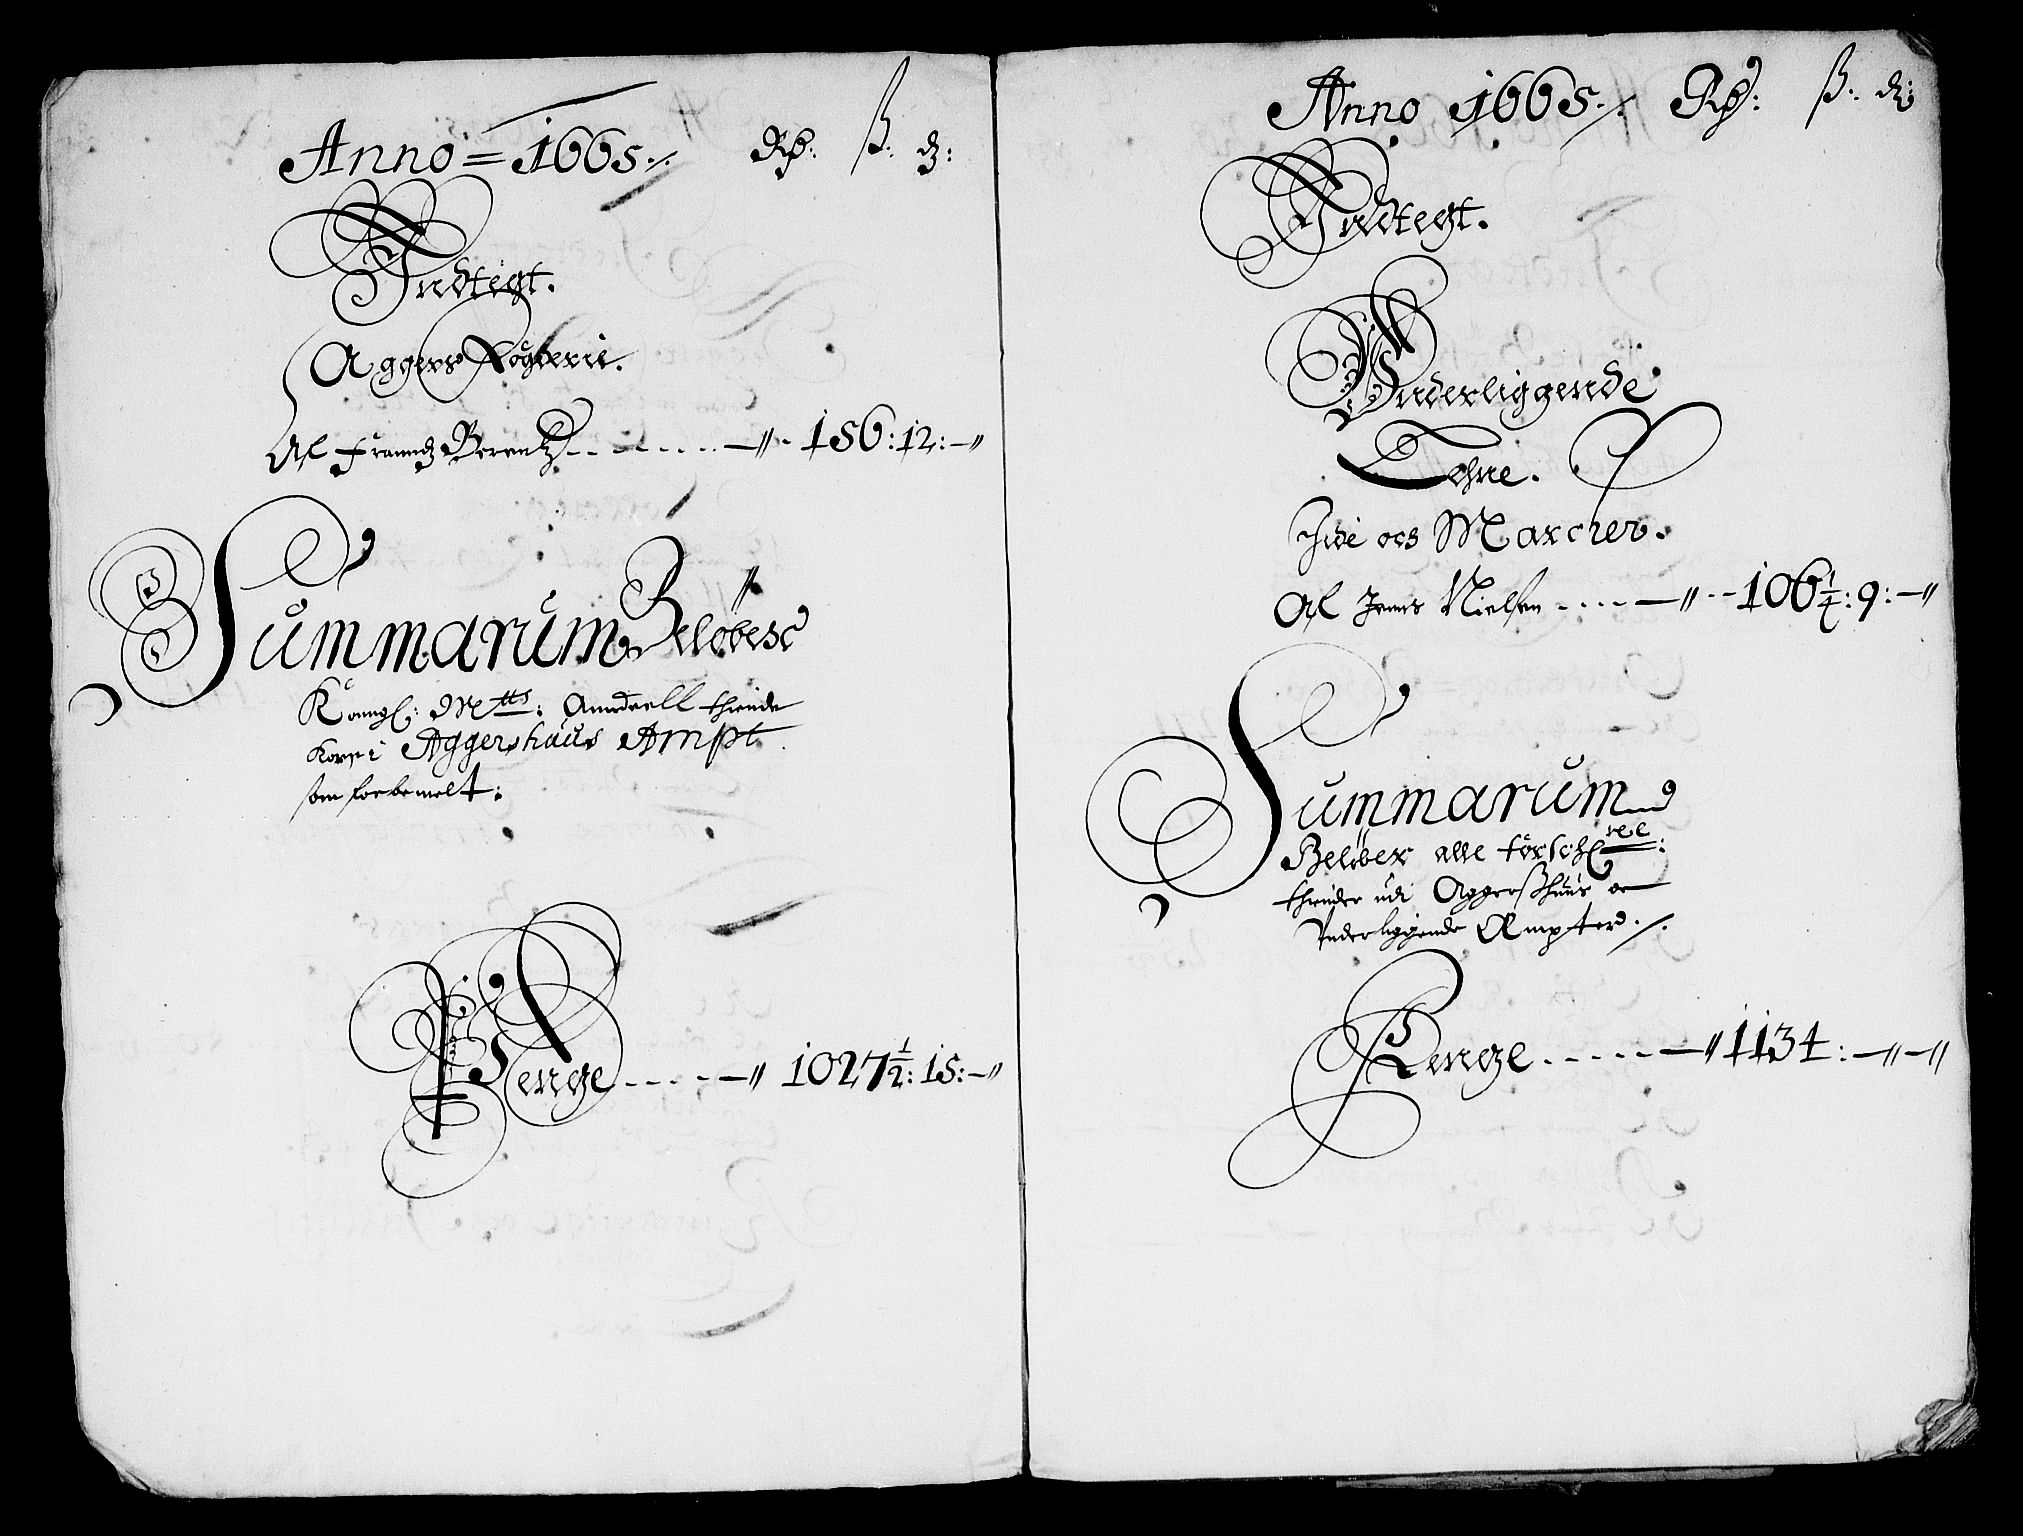 Anno = 1665 ./. Rß: ß: d:
Indtegt.
Aggers Fogderie.
Af Franndz Berentz - - - - - - - — // - 156 : 12 : — //
Summarum Beløbess
Konngl: Mtts: Anndeell thiende
Korn i Aggershuus Ampt
som forbemelt:
Penge - - - - - — // 1027 1/2 : 15 : — //
Anno 1665 ./. Rß: ß: d:
Indtegt.
Underliggende
Lehne.
Ide och Marcher.
Af Jenns Nielsen - - - - — // - - 106 1/4 : 9 : — //
Summarum
Beløber alle forschrne:
thiender udi Aggerßhuus oc
Underliggende Ampter ./.
Penge - - - - - — // 1134 : — // — //